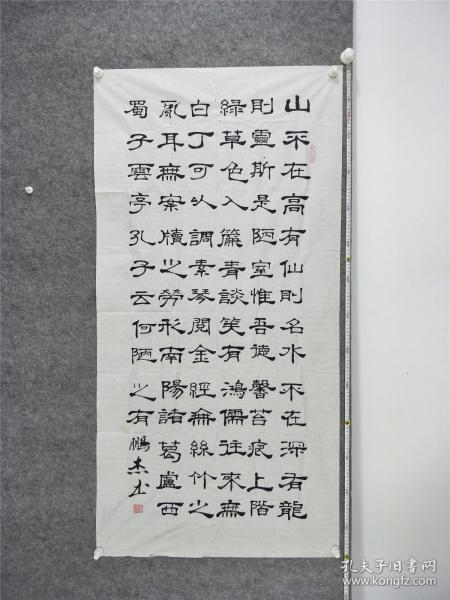 山不在高有仙則名水不在深有龍
則靈斯是陋室惟吾德馨苔痕上階
綠草色入簾青談笑有鴻儒往來無
白丁可以調素琴閱金經無絲竹之
亂耳無案牘之勞形南陽諸葛盧西
蜀子雲亭孔子云何陋之有
鵬杰书
孔夫子旧书网
www.kongfz.com